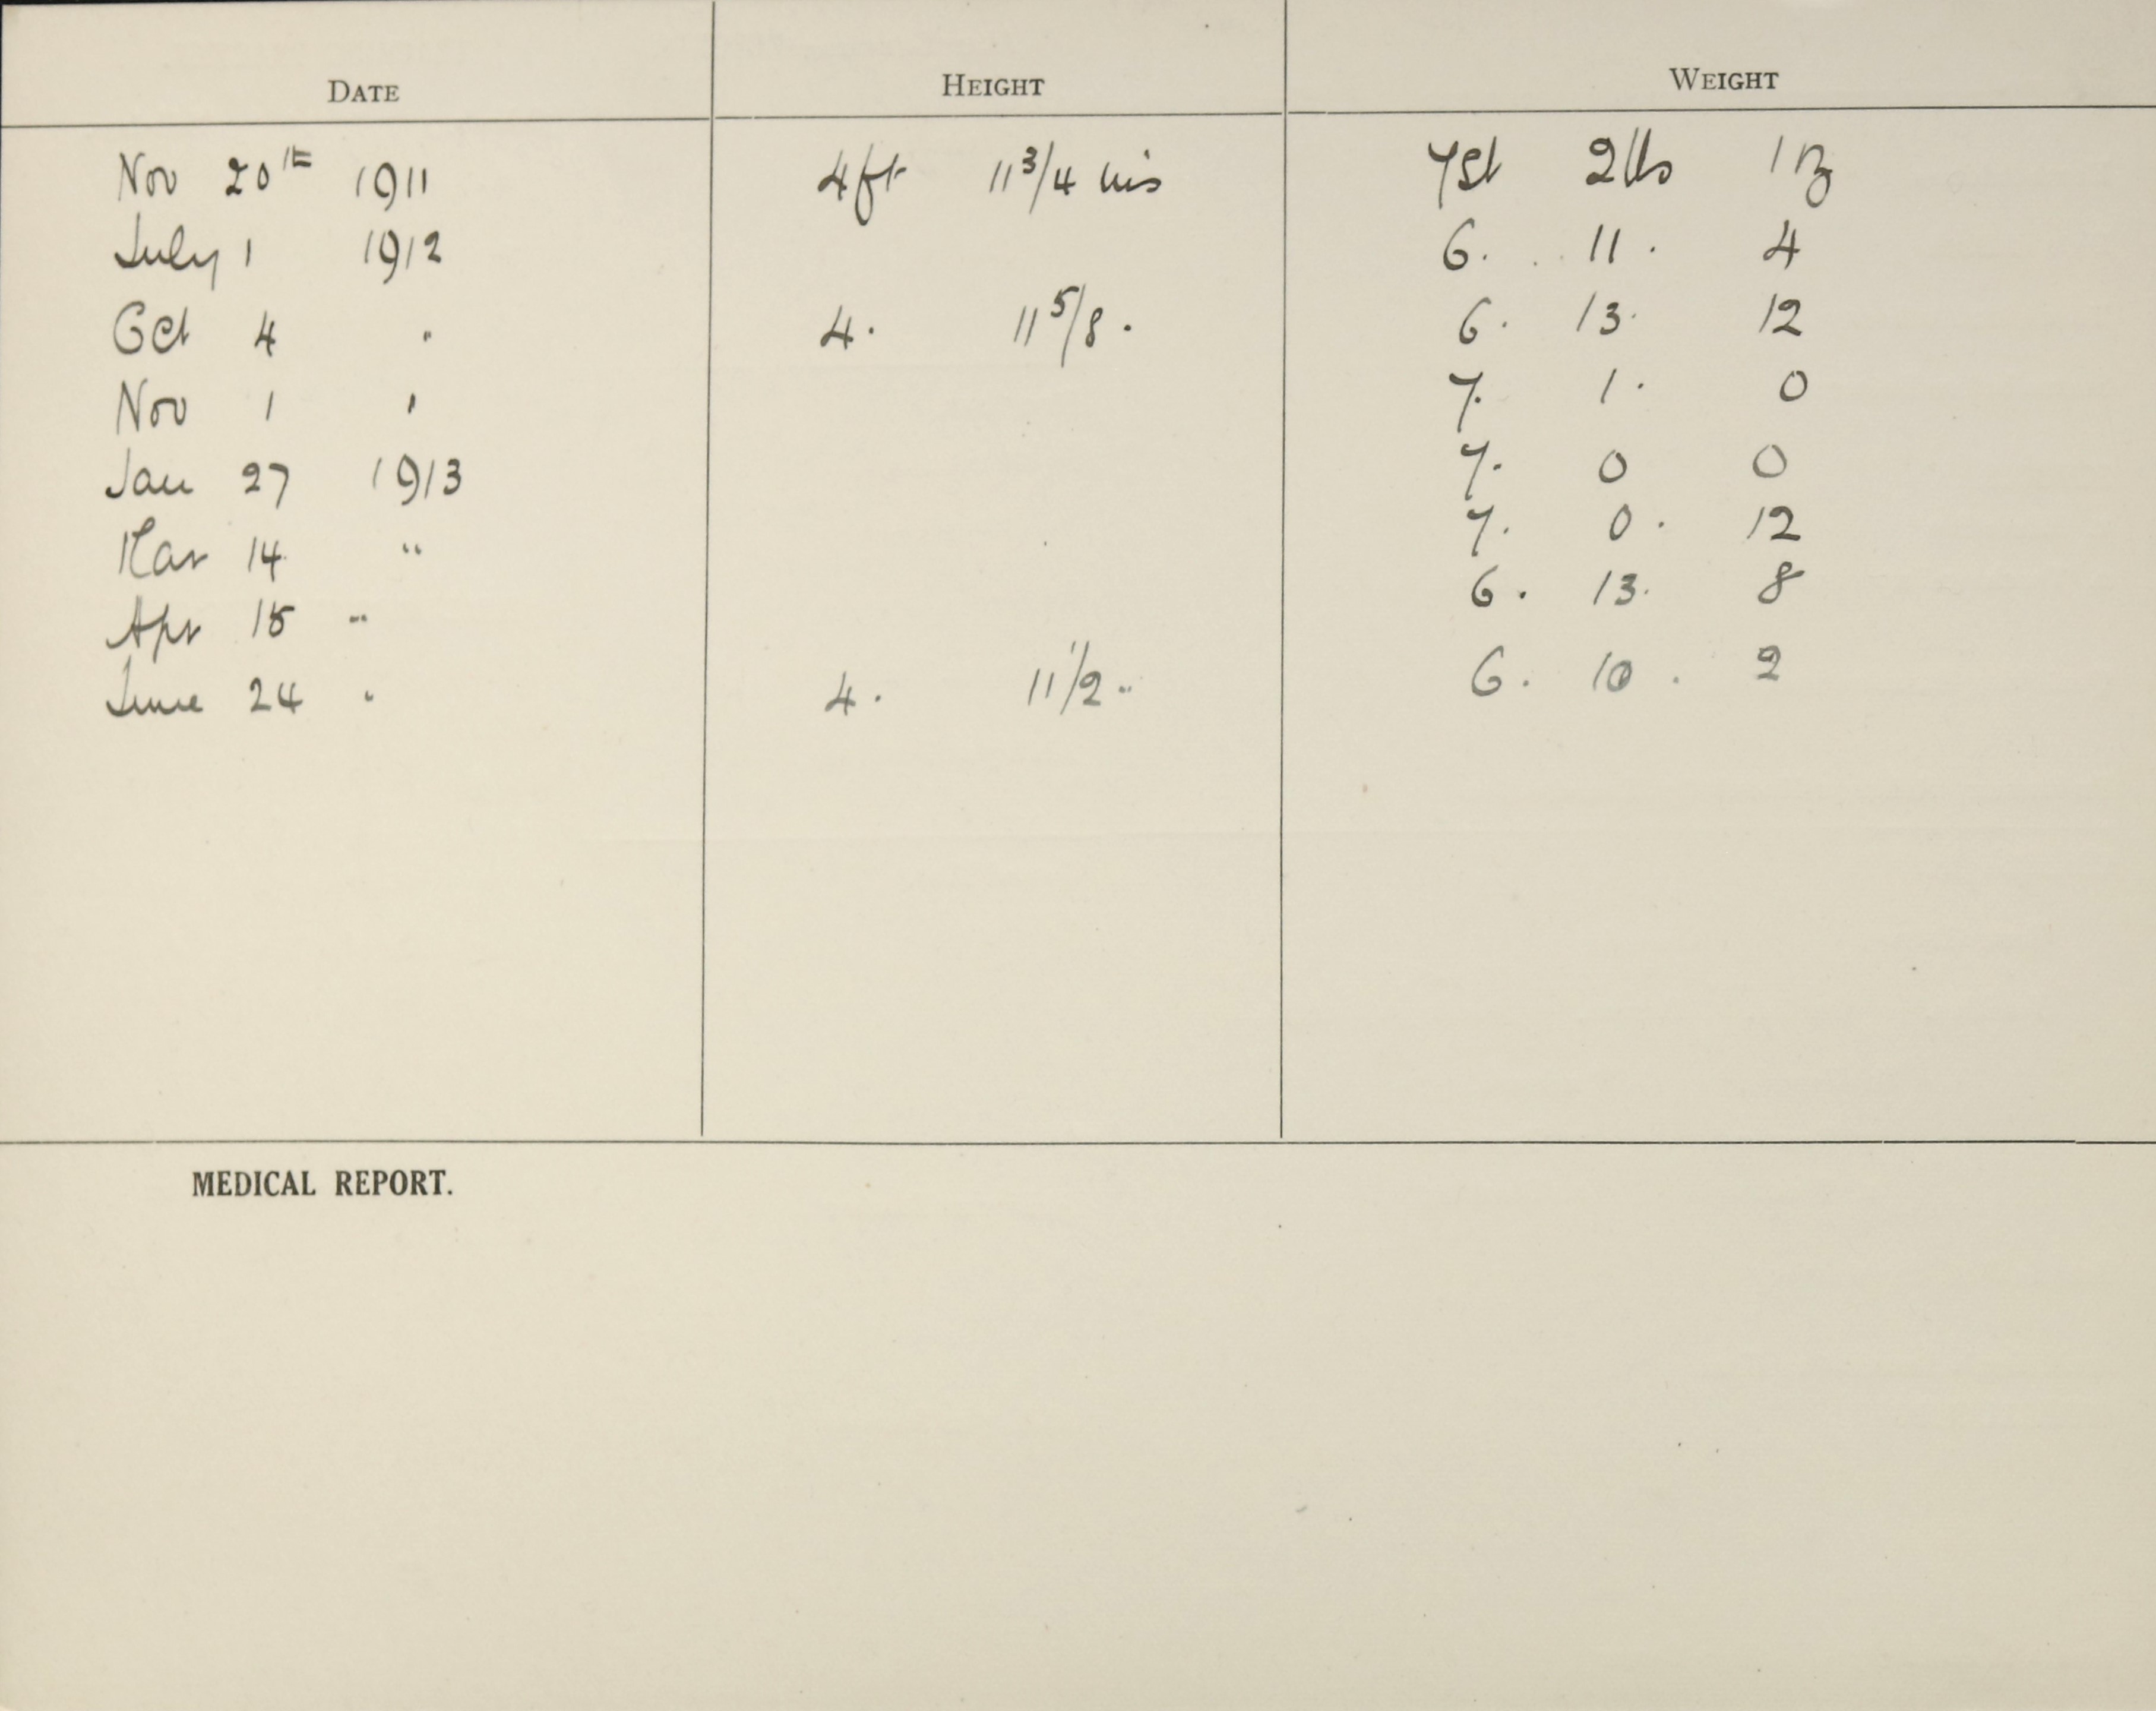 DATE HEIGHT WEIGHT
Nov 20th 1911 4ft 11 3/4 ins 7st 2lbs 1oz
July 1 1912 6. 11. 4
Oct 4 " 4. 11 5/8. 6. 13. 12
Nov 1 " 7. 1. 0
Jan 27 1913 7. 0 0
Mar 14 " 7. 0. 12
Apr 15 " 6. 13. 8
June 24 " 4. 11 1/2 " 6. 10. 2
MEDICAL REPORT.